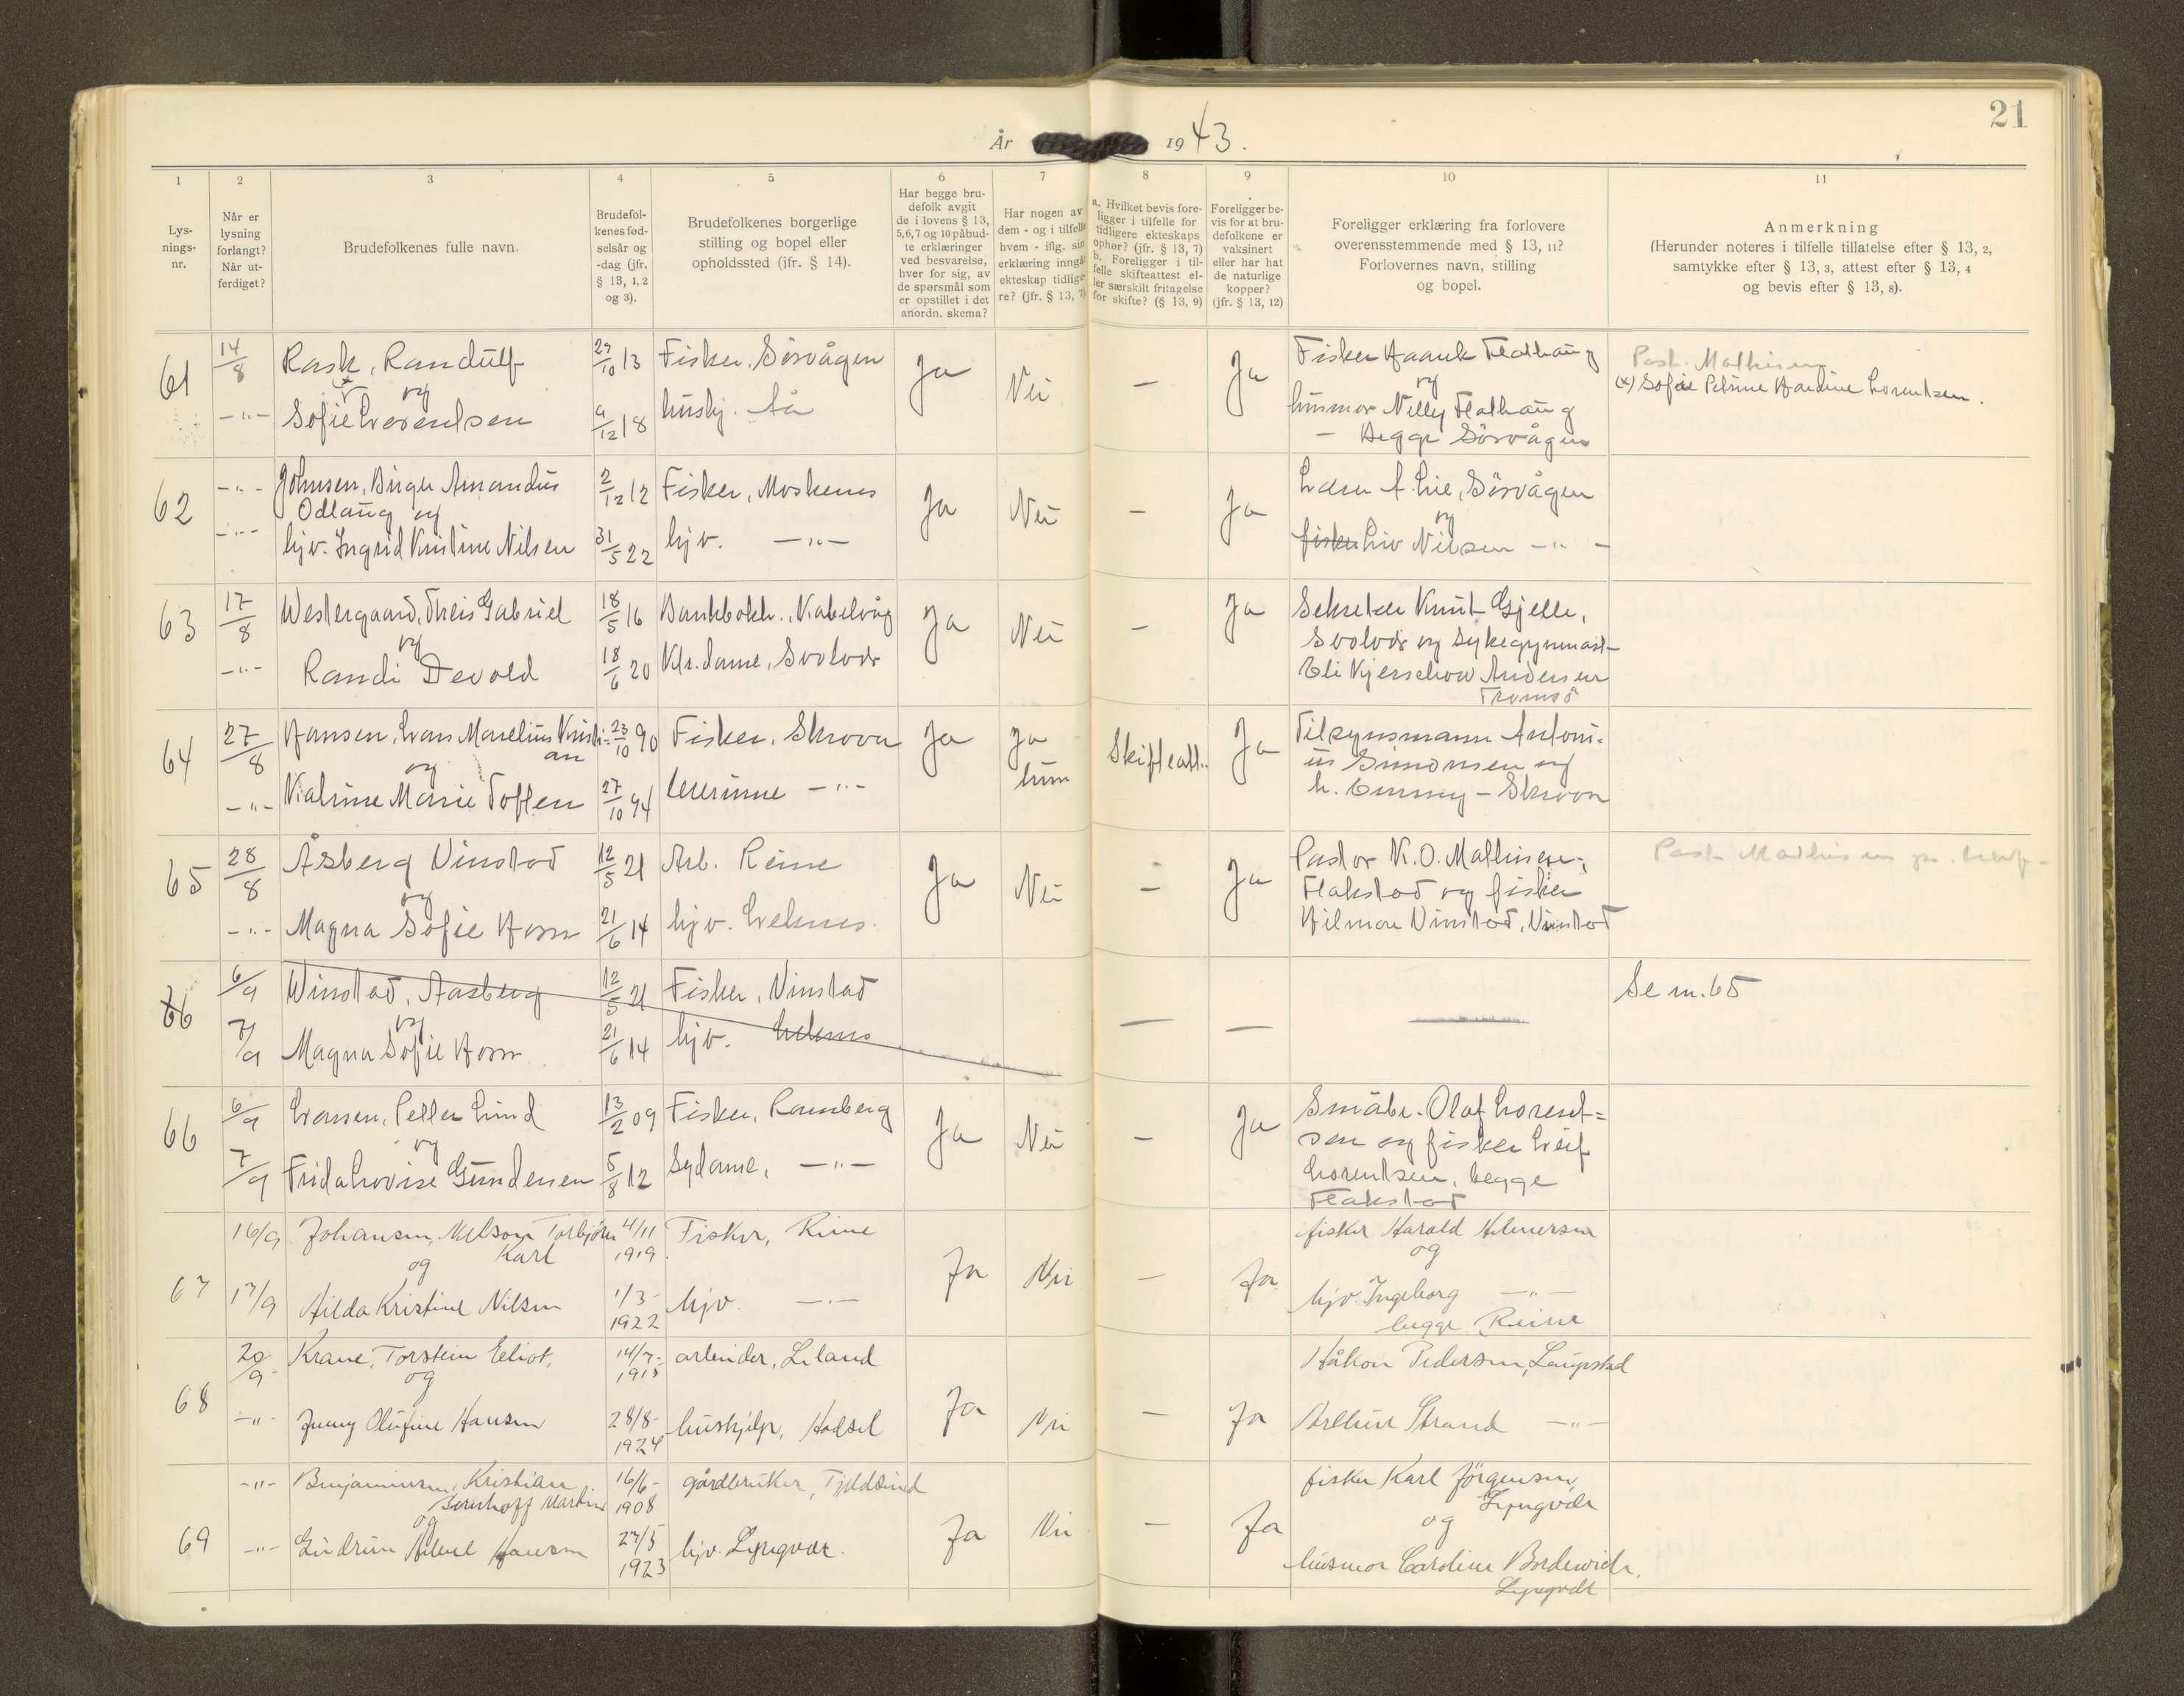 21
År 1943.
1 2 3 4 5 6 7 8 9 10 11
Lys-
nings-
nr.
Når er
lysning
forlangt?
Når ut-
ferdiget?
Brudefolkenes fulle navn.
Brudefol-
kenes fød-
selsår og
-dag (jfr.
§ 13, 1, 2
og 3).
Brudefolkenes borgerlige
stilling og bopel eller
opholdssted (jfr. § 14).
Har begge bru-
defolk avgit
de i lovens § 13,
5, 6, 7 og 10 påbud-
te erklæringer
ved besvarelse,
hver for sig, av
de spørsmål som
er opstillet i det
anordn. skema?
Har nogen av
dem - og i tilfelle
hvem - iflg. sin
erklæring inngåt
ekteskap tidlige-
re? (jfr. § 13, 7)
a. Hvilket bevis fore-
ligger i tilfelle for
tidligere ekteskaps
ophør? (jfr. § 13, 7)
b. Foreligger i til-
felle skifteattest el-
ler særskilt fritagelse
for skifte? (§ 13, 9)
Foreligger be-
vis for at bru-
defolkene er
vaksinert
eller har hat
de naturlige
kopper?
(jfr. § 13, 12)
Foreligger erklæring fra forlovere
overensstemmende med § 13, 11?
Forlovernes navn, stilling
og bopel.
Anmerkning
(Herunder noteres i tilfelle tillatelse efter § 13, 2,
samtykke efter § 13, 3, attest efter § 13, 4
og bevis efter § 13, 8).
61 14/8 Rask, Randulf 29/10 13 Fisker, Sörvågen Ja Nei — Ja
og
—"— Sofie Lorentsen 9/12 18 hushj. Å
Fisker Haakon
og
husmor Nelly
— Begge Sörvågen
Past. Mathisen
(x) Sofie Petrine Hardine Lorentsen.
62 —"— Johnsen, Birger Amandus 2/12 12 Fisker, Moskenes Ja Nei — Ja
Odlaug og
—"— hjv. Ingrid Kristine Nilsen 31/5 22 hjv. —"—
A. Lie, Sörvågen
og
fisker Liv Nilsen —"—
63 17/8 Westergaard, Theis Gabriel 18/5 16 Bankbokh., Kabelvåg Ja Nei — Ja
og
—"— Randi Devold 18/6 20 Ktr.dame, Svolvær
Sekretær Knut Gjelle,
Svolvær og sykegymnast
Eli Kjerschow Andersen
Tromsö
64 27/8 Hansen, Evan Marelius Kristi- 23/10 90 Fisker, Skrova Ja Ja Skifteatt. Ja
an
og hun
—"— Katrine Marie Toften 27/10 94 lererinne —"—
Tilsynsmann Antoni-
us Simonsen og
h. Emmy - Skrova
65 28/8 Åsberg Vinstad 12/5 21 Arb. Reine Ja Nei — Ja
og
—"— Magna Sofie Horn 21/6 14 hjv. Leknes.
Pastor K. O. Mathisen,
Flakstad og fisker
Hilmar Vinstad, Vinstad
Past. Mathisen
66 6/9 Winstad, Aasberg 12/5 21 Fisker, Vinstad — — —
og
7/9 Magna Sofie Horn 21/6 14 hjv. Leknes
Se nr. 65
66 6/9 Larsen, Petter Lind 13/2 09 Fisker, Ramberg Ja Nei — Ja
og
7/9 Frida Lovise Gundersen 5/8 12 Sydame, —"—
Småbr. Olaf Lorent-
sen og fisker Leif
Lorentsen, begge
Flakstad
67 16/9 Johansen, Nelson Torbjörn 4/11 Fisker, Reine Ja Nei — Ja
Karl 1919
og
17/9 Hilda Kristine Nilsen 1/3- hjv. —"—
1922
fisker Harald Helmersen
og
hjv. Ingeborg —"—
begge Reine
68 20/9 Krane, Torstein Eliot, 14/7- arbeider, Leland Ja Nei — Ja
og 1915
—"— Jenny Olufine Hansen 28/8- hushjelp, Hadsel
1924
Håkon Pedersen, Laupstad
Arthur Strand —"—
69 —"— Benjaminsen, Kristian 16/6- gårdbruker, Tjeldsund Ja Nei — Ja
Bernhoff Martin 1908
og
—"— Gudrun Hansen 27/5 hjv. Lyngvær.
1923
fisker Karl Jörgensen,
Lyngvær
og
husmor Caroline Bordewich,
Lyngvær